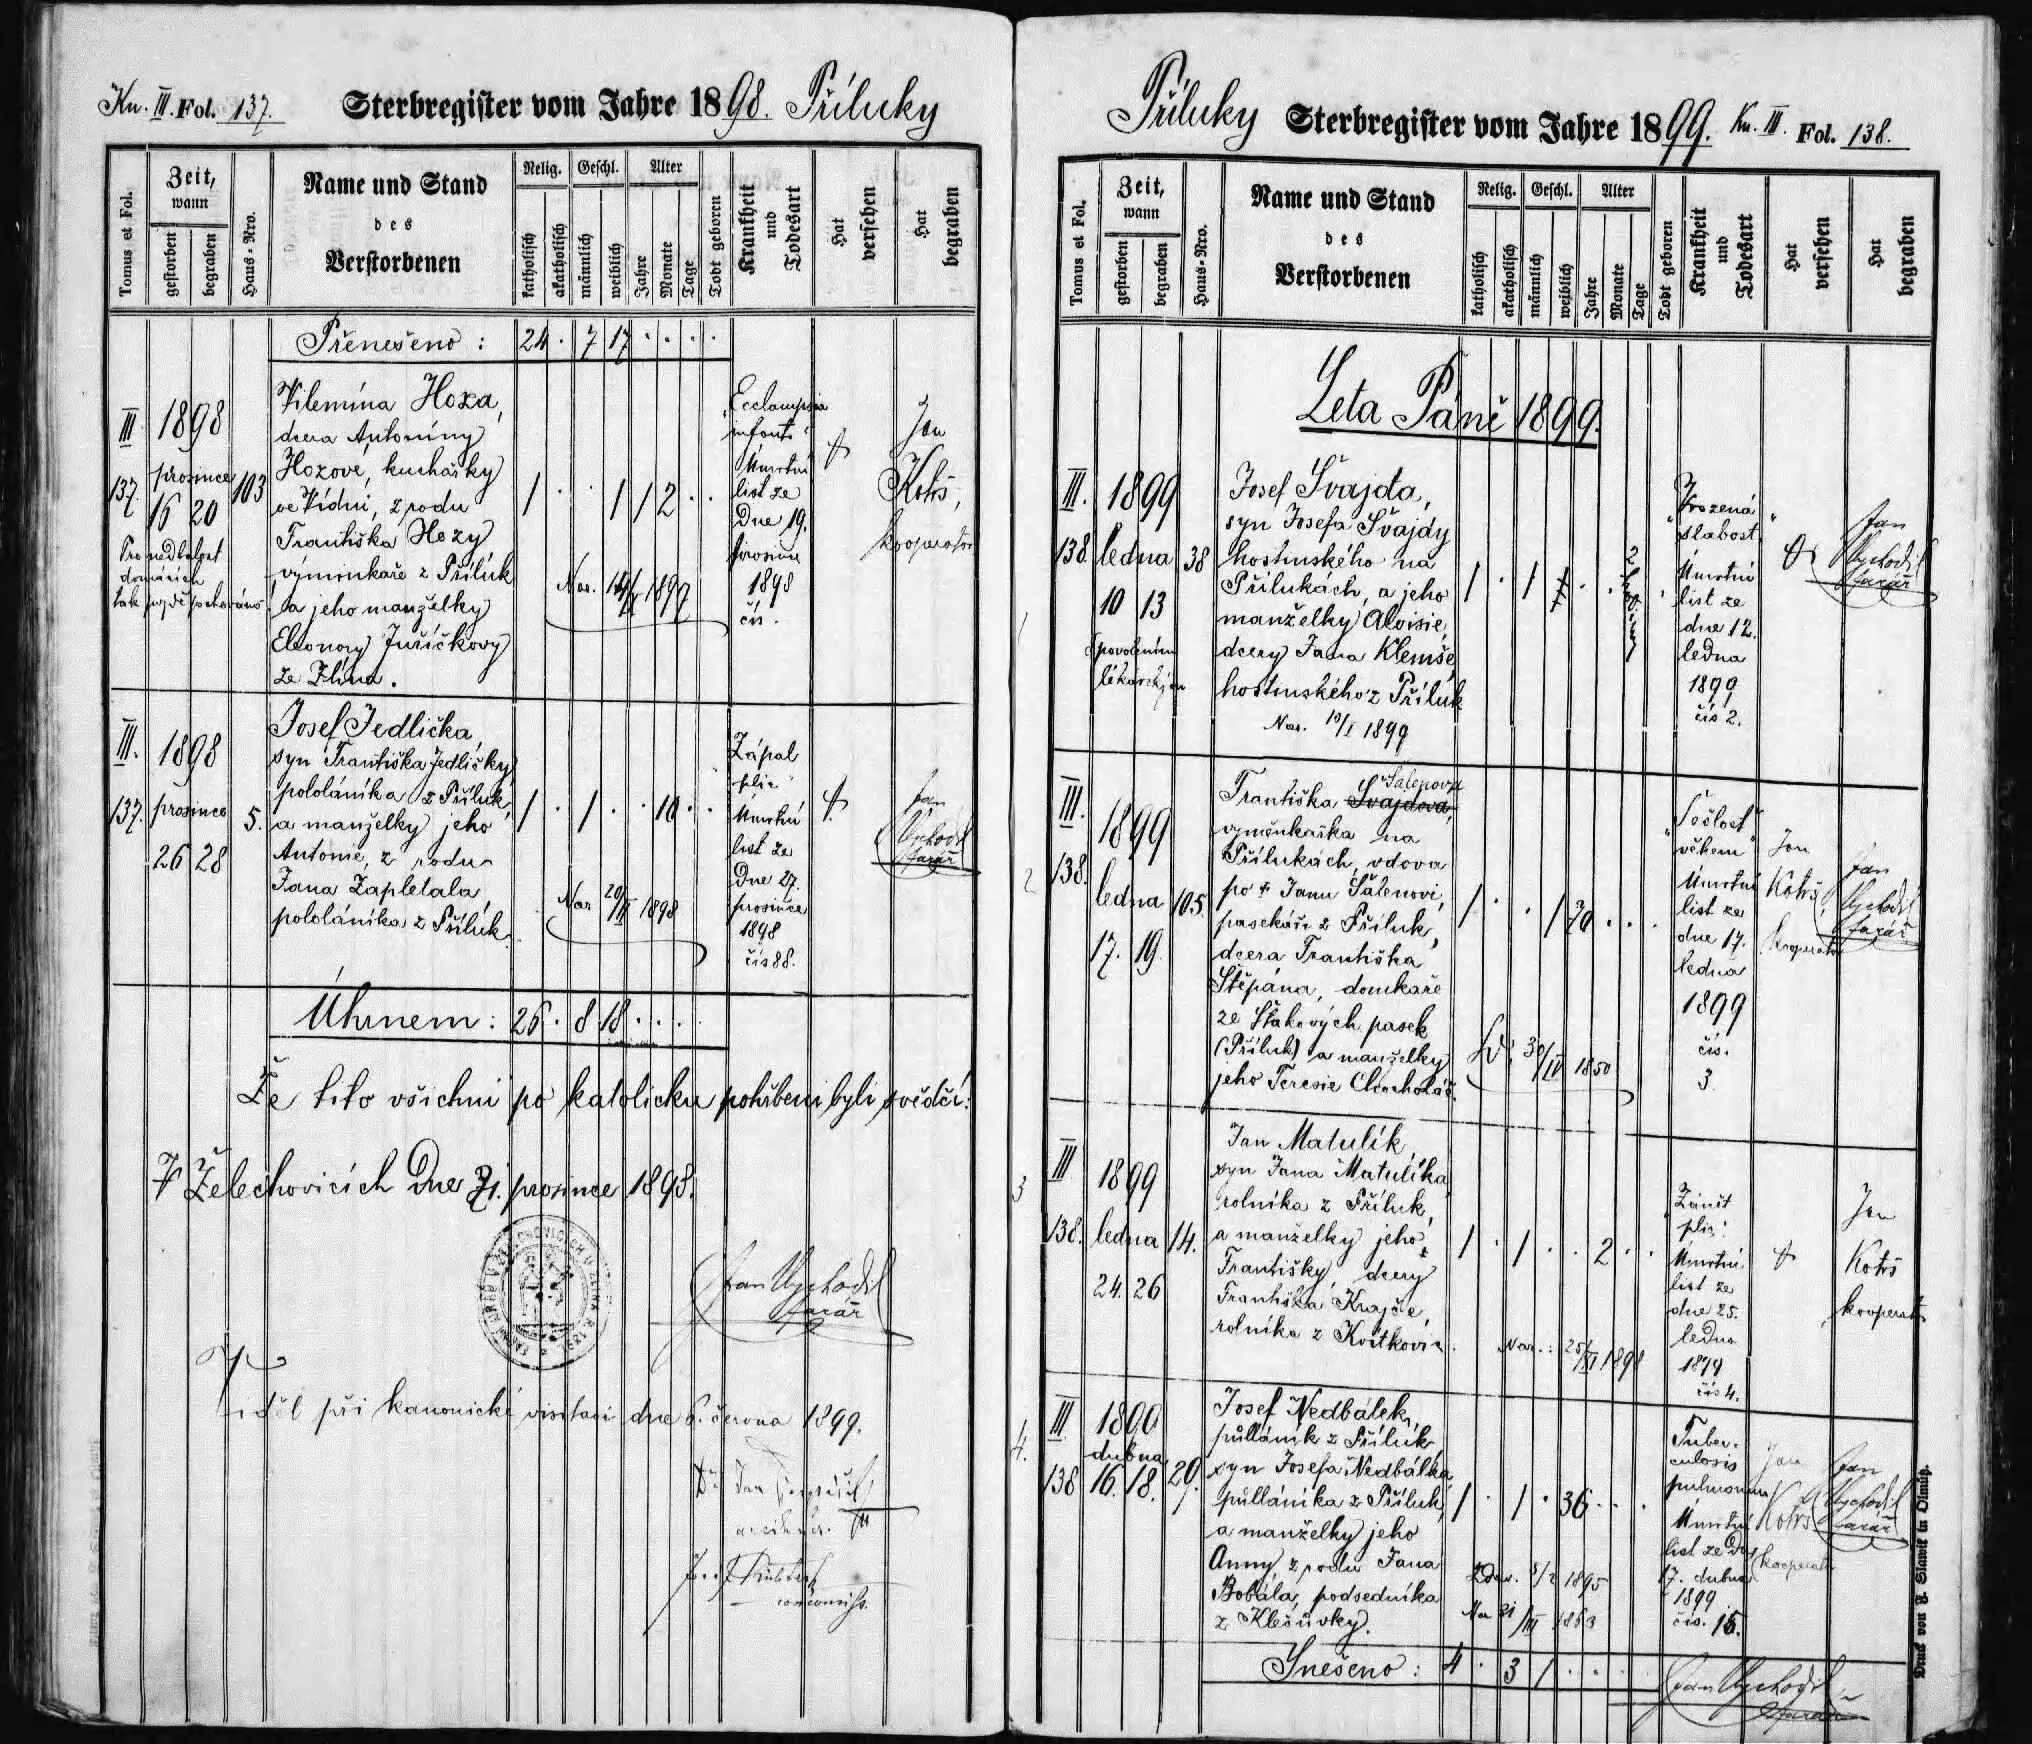 Kn. III. Fol. 137.
Sterbregister vom Jahre 1898. Příluky
Tomus et Fol.
Zeit, wann
gestorben
begraben
Haus-Nro.
Name und Stand
des
Verstorbenen
Relig.
katholisch
akatholisch
Geschl.
männlich
weiblich
Alter
Jahre
Monate
Tage
Todt geboren
Krankheit
und
Todesart
Hat
versehen
Hat
begraben
Přenešeno : 24 . 7 17 . . . .
III
137.
1898
prosince
16 20
Pro nedbalost
domácích
tak
103
Vilemína Hoza,
dcera Antoníny
Hozove, kuchařky
ve Vídni, z rodu
Františka Hozy
výminkaře z Příluk
a jeho manželky
Eleonory Juříčkovy
ze Zlína.
1 . . 1 1 2 . .
Nar. 1897
"Ecclampsia
infant."
Úmrtní
list ze
Dne 19.
prosince
1898
čís.
Jan
Kotrš,
kooperator
III.
137.
1898
prosince
26 28
5.
Josef Jedlička,
syn Františka Jedličky
pololáníka z Příluk,
a manželky jeho
Antonie, z rodu
Jana Zapletala,
pololáníka z Příluk.
1 . 1 . . 10 . .
Nar 20/II 1898
Zápal
plic
Úmrtní
list ze
Dne 27.
prosince
1898
čís 88.
Jan
Vychodil
farář
Úhrnem : 26 . 8 18 . . . .
Že tito všichni po katolicku pohřbeni byli svědčí:
V Želechovicích Dne 31. prosince 1898.
Jan Vychodil
farář
Viděl při kanonické visitaci dne 6. června 1899.
Dr Jan
Příluky
Sterbregister vom Jahre 1899. Kn. III. Fol. 138.
Tomus et Fol.
Zeit, wann
gestorben
begraben
Haus-Nro.
Name und Stand
des
Verstorbenen
Relig.
katholisch
akatholisch
Geschl.
männlich
weiblich
Alter
Jahre
Monate
Tage
Todt geboren
Krankheit
und
Todesart
Hat
versehen
Hat
begraben
Leta Páně 1899.
1
III.
138.
1899
ledna
10 13
S povolením
lékařským
38
Josef Švajda,
syn Josefa Švajdy
hostinského na
Přílukách, a jeho
manželky Aloisie,
dcery Jana Klemše,
hostinského z Příluk
Nar. 10/I 1899
1 . 1 . . 2 hodiny
"Vrozená
slabost"
Úmrtní
list ze
dne 12.
ledna
1899
čís 2.
Jan
Vychodil
farář
2
III.
138.
1899
ledna
17. 19.
105.
Šálenova
Františka Švajdova,
výměnkařka na
Přílukách, vdova
po † Janu Šálenovi,
pasekáři z Příluk,
dcera Františka
Štěpána, domkaře
ze Lžakových pasek
(Příluk) a manželky
jeho Teresie Chocholáč.
1 . . 1 70 . . .
30/IV 1850
"Sešlost
věkem"
Úmrtní
list ze
dne 17.
ledna
1899
čís.
3.
Jan
Kotrš,
kooperator
Jan
Vychodil
farář
3
III
138.
1899
ledna
24. 26
14.
Jan Matulík,
syn Jana Matulíka,
rolníka z Příluk,
a manželky jeho
Františky, dcery
Františka Krajče,
rolníka z Kostkovic.
1 . 1 . . 2 . .
Nar. : 25/XI 1898
"Zánět
plic."
Úmrtní
list ze
dne 25.
ledna
1899
čís 4.
Jan
Kotrš
kooperator
4.
III
138
1899
dubna
16. 18.
29.
Josef Nedbálek,
půlláník z Příluk,
syn Josefa Nedbálka
půlláníka z Příluk,
a manželky jeho
Anny, z rodu Jana
Bobála, podsedníka
z Klečůvky.
1 . 1 . 36 . . .
Zdav. 5/2 1895
Nar 21/III 1863
Tuber-
culosis
pulmonum
Úmrtní
list ze dne
17. dubna
1899
čís. 15.
Jan
Kotrš
kooperator
Jan
Vychodil
farář
Snešeno : 4 . 3 1 . . .
Jan Vychodil
farář
Druck von F. Slawik in Olmütz.